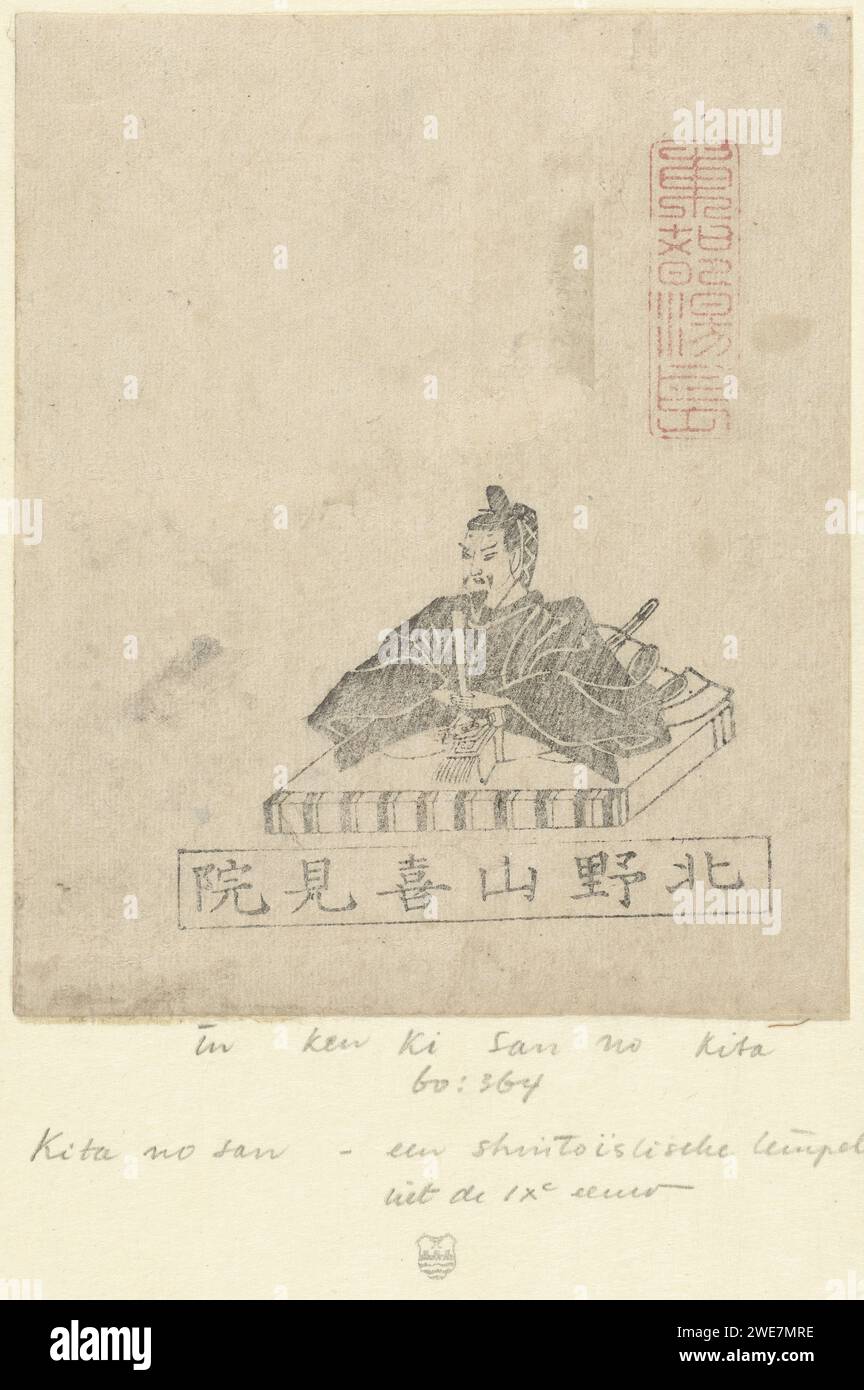 北野山喜見院
in ken ki san no Kita
60:364
Kita no san - een shintoïstische tempel
uit de IXe eeuw
alamy
Image ID: 2WE7MRE
www.alamy.com